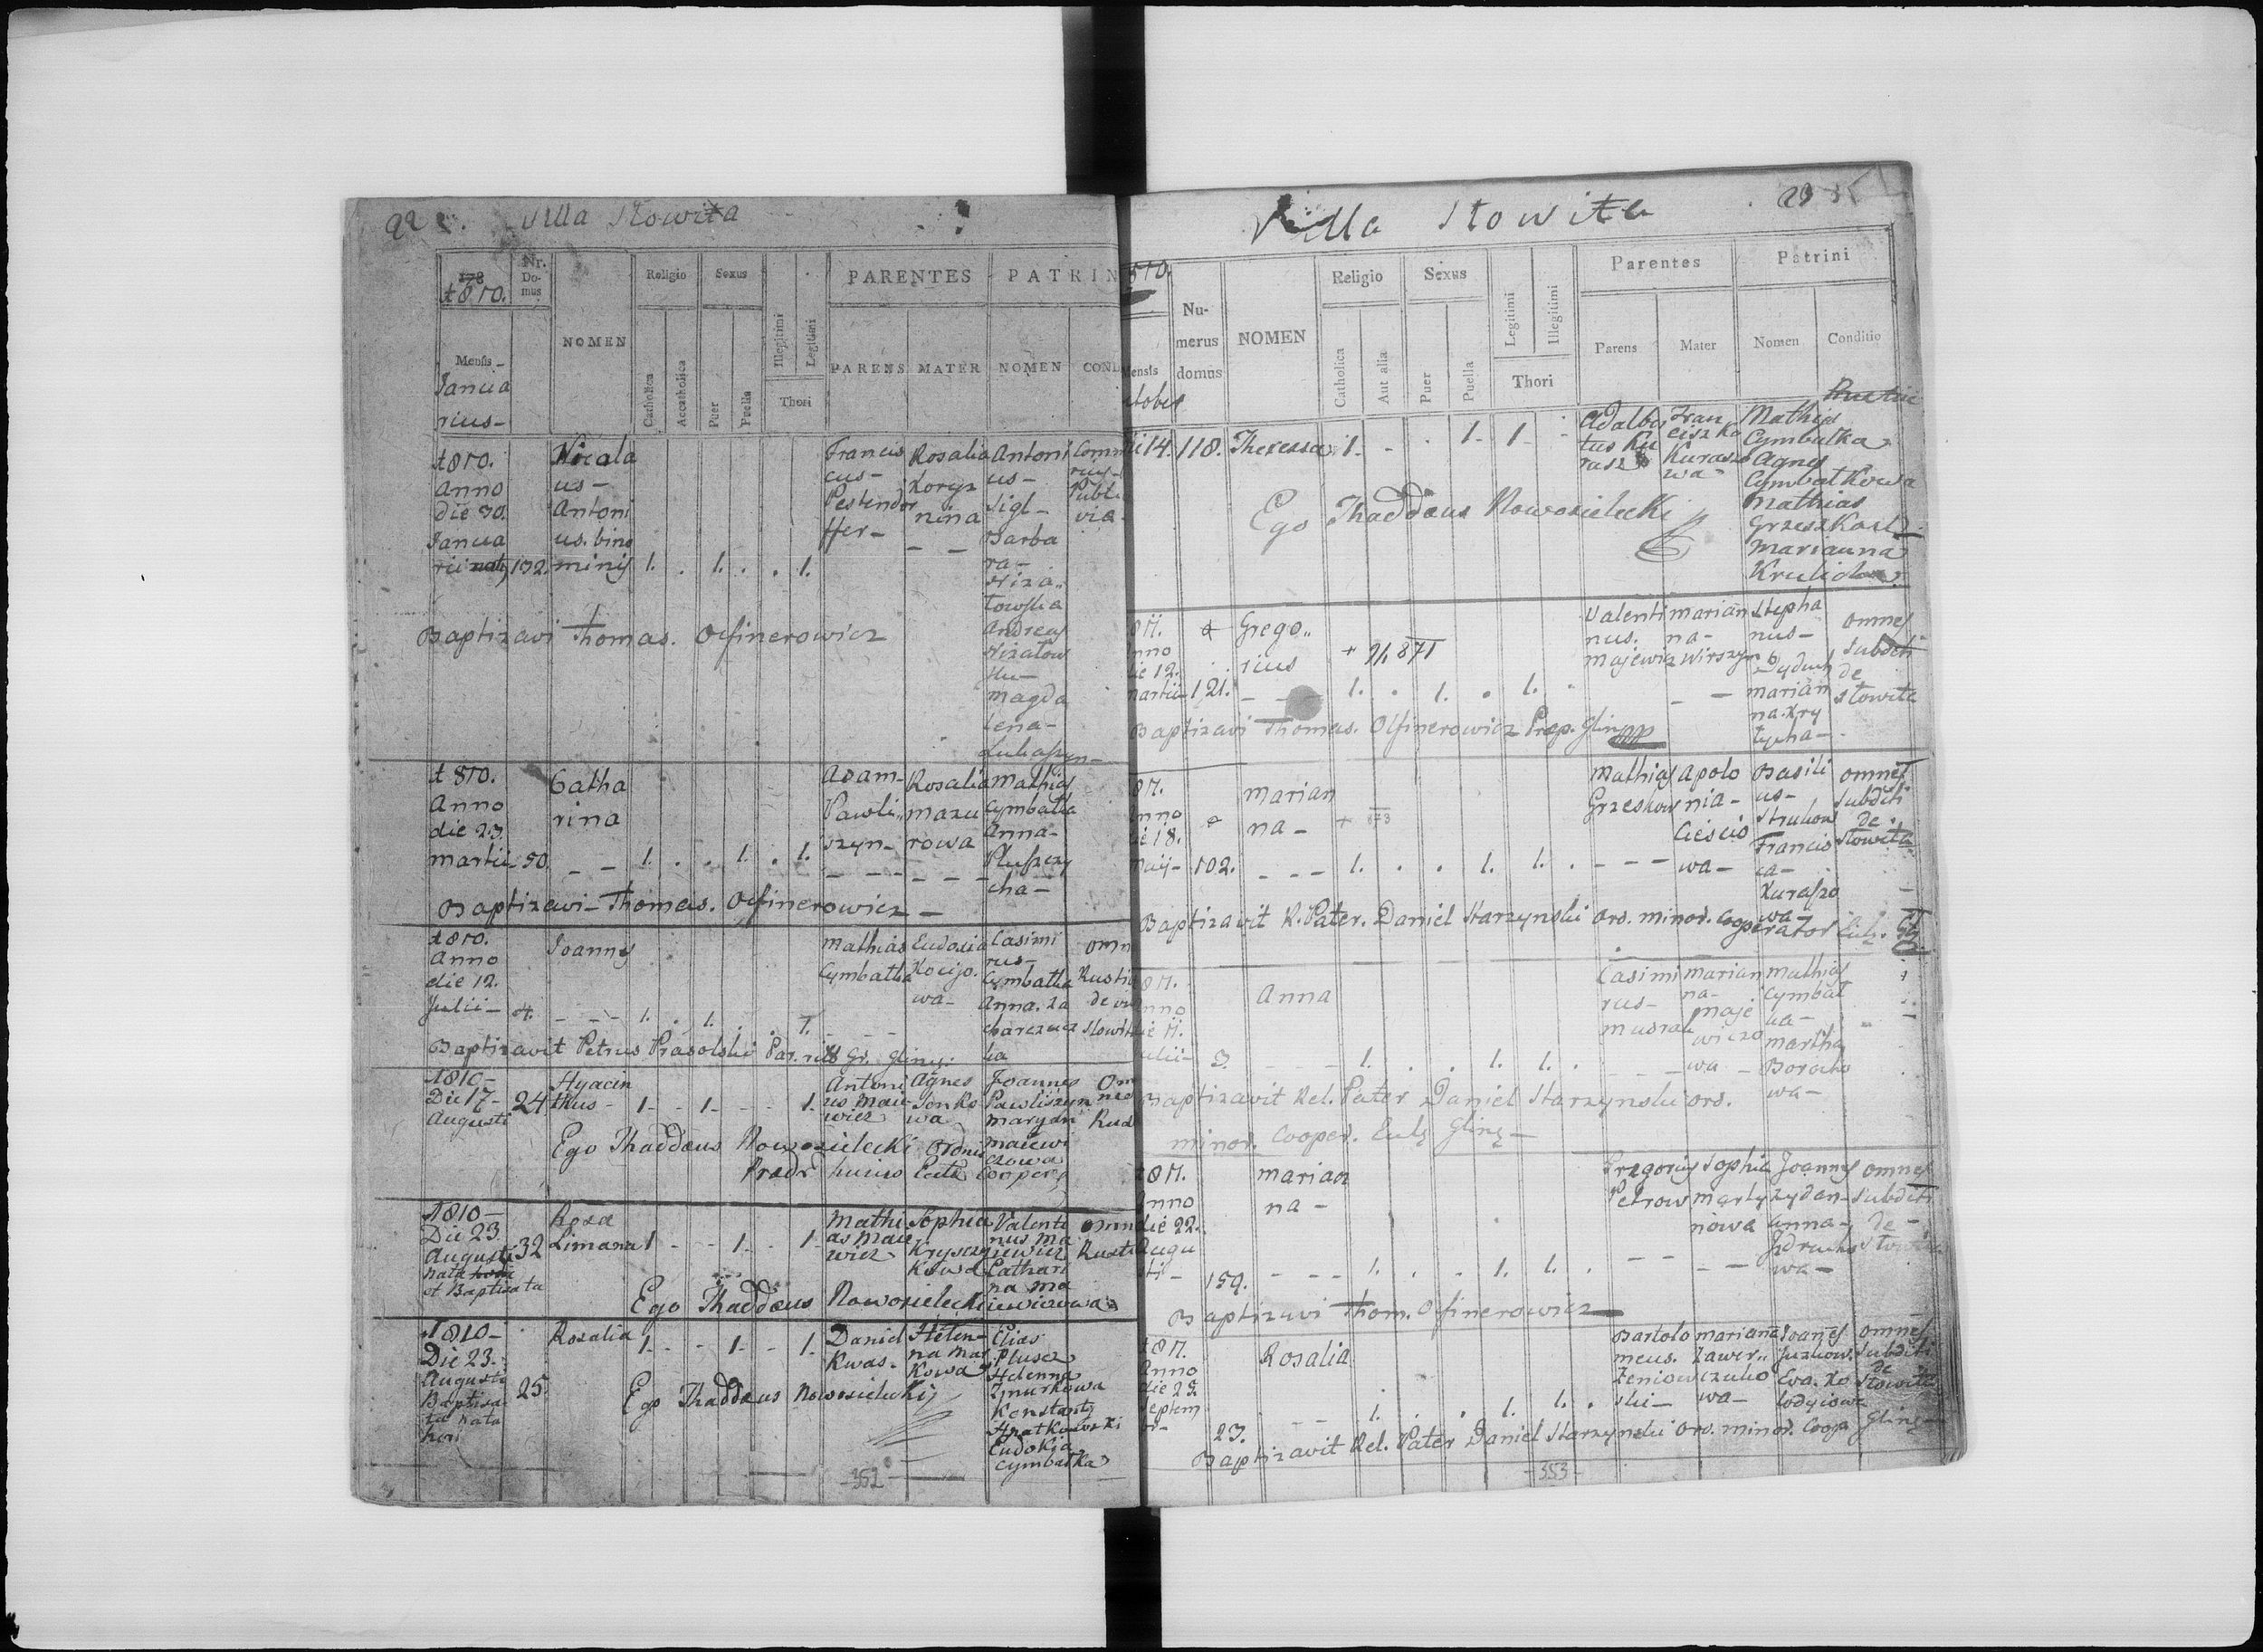 22 Villa Stowita
178
1810.
Nr. Do-
mus
NOMEN
Religio
Sexus
PARENTES
PATRIN
Mensis
Janua
rius-
Catholica
Accatholica
Puer
Puella
Illegitimi
Legitimi
Thori
PARENS
MATER
NOMEN
COND
1810.
Anno
die 30.
Janua
rii
132.
Nicola
us-
Antoni
us. bino
minis
1. . 1. . . 1.
Francis
cus-
Pestendor
ffer-
Rosalia
Koryz
nina
Antoni
us-
Sigl-
Barba
ra-
Niza
towska
Andreas
Nizatow
ski-
Magda
lena-
Lukaszyn-
Baptizavi Thomas. Olfinerowicz
1810.
Anno
die 23.
Martii
50.
Catha
rina
1. . . 1. . 1.
Adam-
Pawli
szyn-
Rosalia
Mazu
rowa
Mathias
Cymbatka
Anna-
Pluszczy
cha-
Baptizavi Thomas. Olfinerowicz-
1810.
Anno
die 12.
Julii-
4.
Joannes
1. . 1. . . 1.
Mathias
Cymbatka
Eudoxia
Kocijo.
wa-
Casimi
rus-
Cymbatka
Anna. Za
charczuc
ka
omn
Rusti
de
Stowit
Baptizavit Petrus Prasolski Par. rit. Gr. Gliny.
1810-
Die 17-
Augusti
24
Hyacin
thus-
1- - 1- - - 1-
Antoni
us Maie
wicz
Agnes
Senko
wa
Joannes
Pawliszyn
Maryan
Maiewi
czowa
Om
nes
Rud
Ego Thaddaeus Nowosielecki Ordnis
Praedr huius Ecclae Cooper
1810-
Die 23
Augusti
Nata
et Baptisata
32
Rosa
Limana
1 - - 1- - 1-
Mathi
as Maie
wicz
Sophia
Krysczy
kowa
Valenti
nus Ma
iewicz
Cathari
na Ma
iewiczowa
omn
Rusti
Ego Thaddaeus Nowosielecki
1810-
Die 23-
Augusti
Baptisa
ta Nata
heri
25
Rosalia
1- - - 1- - 1-
Daniel
Kwas-
Helen-
na Mar
kowa
Elias
Plusez
Helenna
Zmurkowa
Konstanty
Hnatkowski
Eudokia
Cymbatka
Ego Thaddaeus Nowosielecki
-352-
Villa Stowita
23
810.
Nu-
merus
domus
NOMEN
Religio
Sexus
Parentes
Patrini
Mensis
Catholica
Aut alia
Puer
Puella
Legitimi
Illegitimi
Thori
Parens
Mater
Nomen
Conditio
die 14.
118.
Theressa
1- - . 1- 1- -
Adalber
tus Ku
rasz
Fran
ciszka
Kuraszo
wa
Mathias
Cymbatka
Agnes
Cymbatkowa
Mathias
Grzeszkow
Marianna
Ego Thaddaeus Nowosielecki
811.
Anno
die 12.
Martii
121.
Grego
rius
+ 9/1 871
1. . 1. . 1. .
Valenti
nus.
Majewicz
Marian
na-
Wirszyn
Stepha
nus-
Dyduch
Marian
na. Kry
tycha-
omnes
subditi
de
Stowita
Baptizavi Thomas. Olfinerowicz Prep. Glin
811.
Anno
die 18.
Maij-
102.
Marian
na-
+ 873
1. . . 1. 1. .
Mathias
Grzeskow
Apolo
nia-
Ciescio
wa-
Basili
us-
Francis
ca-
Kuraszo
wa-
omnes
subditi
de
Stowita
Baptizavit R. Pater. Daniel Starzynski Ord. Minor. Cooperator
811.
Anno
die 11.
Julii
3.
Anna
1. . . 1. 1. .
Casimi
rus-
Marian
na-
Maje
wiczo
wa
Mathias
Cymbat
ka-
Martha
wa-
Baptizavit Rel. Pater Daniel Starzynski Ord.
Minor. Cooper.
1811.
Anno
die 22.
Augu
sti-
159.
Marian
na-
1. . . 1. 1. .
Gregorius
Petrow
Sophia
Marty
nowa
Joannes
Zydan
Anna-
wa-
omnes
subditi
de-
Baptizavi Thom. Olfinerowicz
1811.
Anno
die 29.
Septem
br-
23.
Rosalia
1. . . 1. 1. .
Bartolo
meus.
Zeniow
ski-
Mariana
Zawer
czucho
wa-
Joanes
Juzkow.
Eva. Ko
lodyiowa
omnes
subditi
de
Stowita
Baptizavit Rel. Pater Daniel Starzynski Ord. Minor. Coop. Glinę
-353-